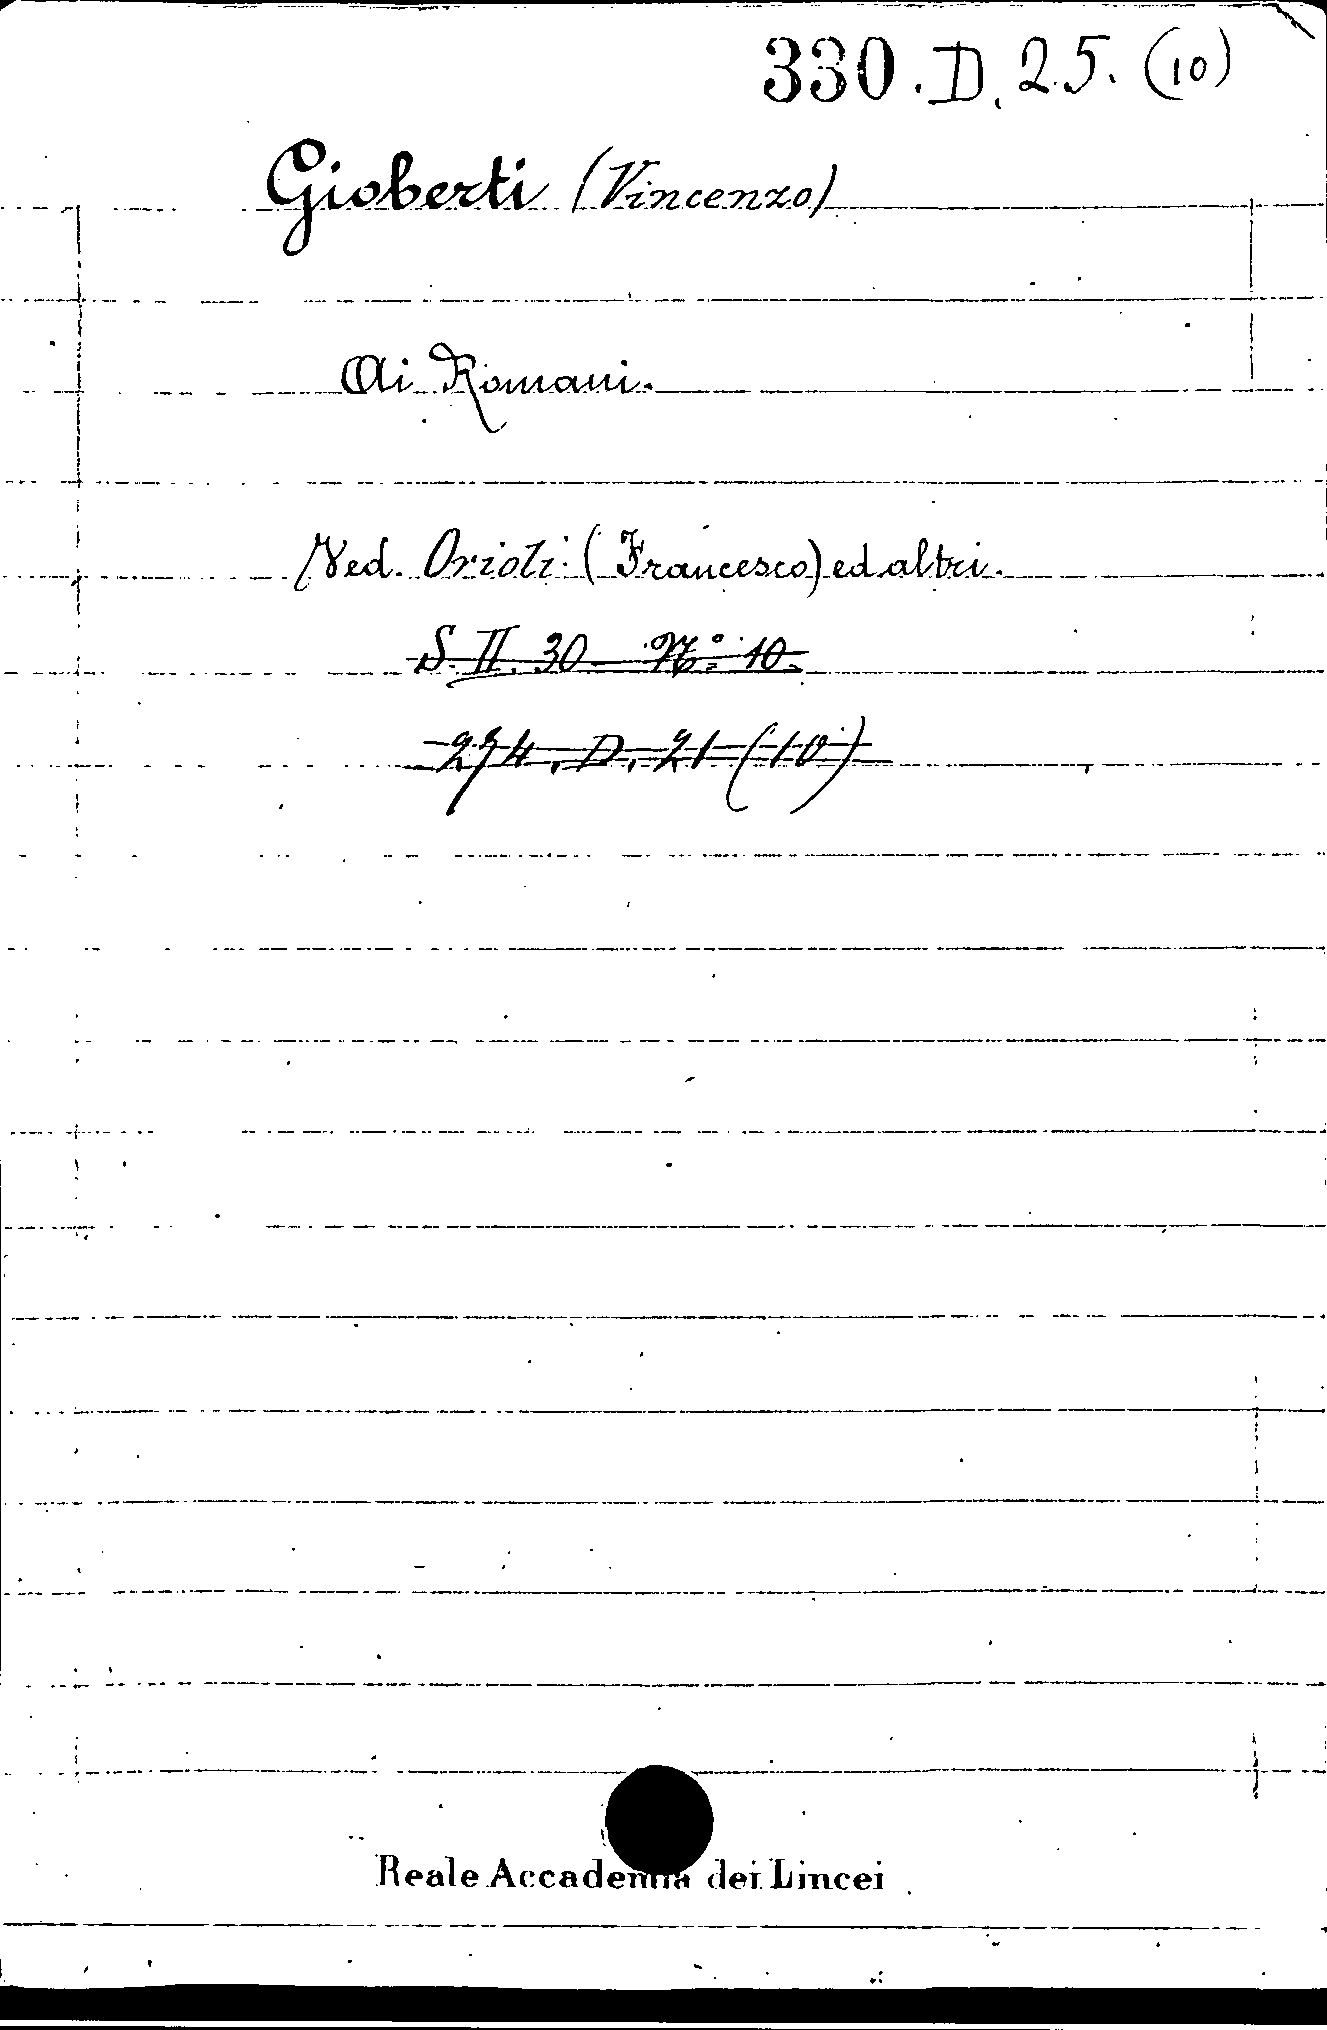 330. D. 25. (10)
Gioberti (Vincenzo)
Ai Romani.
Ved. Orioli (Francesco) ed altri.
S. II. 30 N.º 10.
274. D. 21 (10)
Reale Accademia dei Lincei